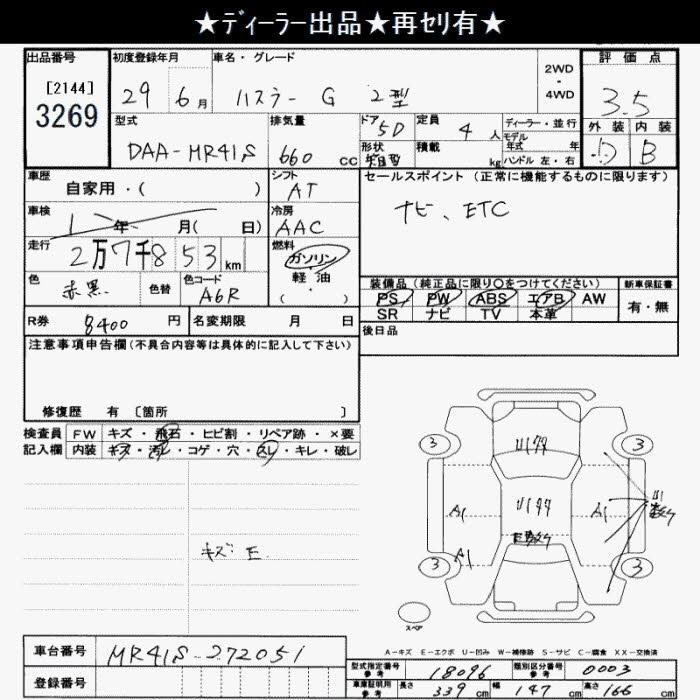 ★ディーラー出品★再セリ有★
出品番号
[2144]
3269
初度登録年月
29 6月
車名・グレード
ハスラー G 2型
2WD
・
4WD
評価点
3.5
外装 内装
B
型式
DAA-MR41S
排気量
660 cc
ドア
5D
形状
定員
4 人
積載
kg
ディーラー・並行
モデル
年式 年
ハンドル 左・右
車歴
自家用・( )
シフト
AT
セールスポイント(正常に機能するものに限ります)
ナビ、ETC
車検
1年 月( 日)
冷房
AAC
走行
2万7千853km
燃料
ガソリン
・
軽油
・
( )
色
赤黒
色替
色コード
A6R
装備品(純正品に限り○をつけてください)
PS PW ABS エアB AW
SR ナビ TV 本革
新車保証書
有・無
R券
8400 円
名変期限 月 日
後日品
注意事項申告欄(不具合内容等は具体的に記入して下さい)
修復歴 有 〔箇所 〕
検査員
記入欄
FW キズ・飛石・ヒビ割・リペア跡・×要
内装 キズ・汚レ・コゲ・穴・スレ・キレ・破レ
キズ、E
3
3
U1
U1
A1
A1
A1
U1
3
3
スペア
A-キズ E-エクボ U-凹み W-補修跡 S-サビ C-腐食 XX-交換済
車台番号
MR41S-272051
登録番号
型式指定番号
参考
18096
類別区分番号
参考
0003
車庫証明用
参考
長さ 339 cm
幅 147 cm
高さ 166 cm